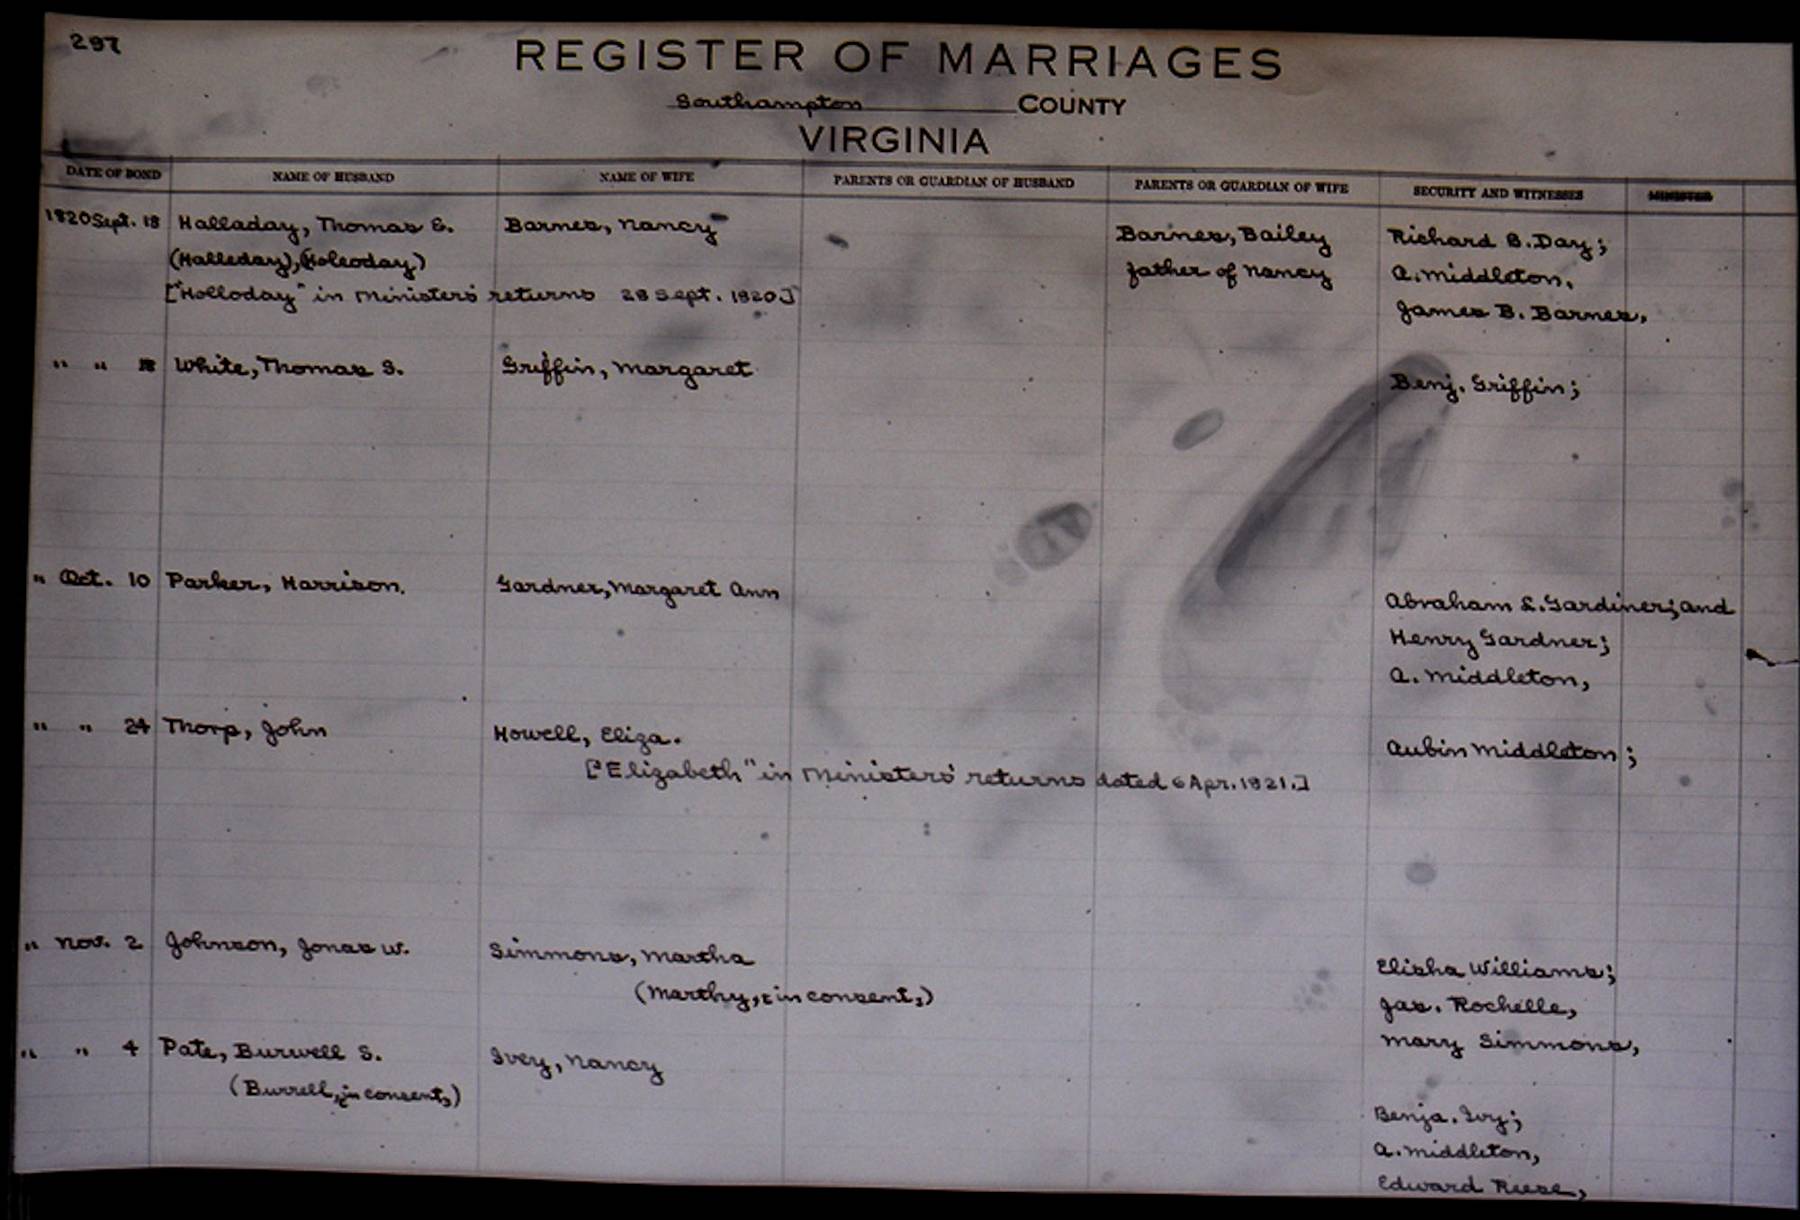 297
REGISTER OF MARRIAGES
Southampton COUNTY
VIRGINIA
DATE OF BOND NAME OF HUSBAND NAME OF WIFE PARENTS OR GUARDIAN OF HUSBAND PARENTS OR GUARDIAN OF WIFE SECURITY AND WITNESSES MINISTER
1820 Sept. 18 Halladay, Thomas E. Barnes, Nancy Barnes, Bailey Richard B. Day;
(Halleday), (Holeoday) father of Nancy A. Middleton,
["Holloday" in Ministers' returns 28 Sept. 1820] James B. Barnes,
" " 18 White, Thomas S. Griffin, Margaret Benj. Griffin;
" Oct. 10 Parker, Harrison. Gardner, Margaret Ann Abraham L. Gardiner; and
Henry Gardner;
A. Middleton,
" " 24 Thorp, John Howell, Eliza. Aubin Middleton;
["Elizabeth" in Ministers' returns dated 6 Apr. 1821.]
" Nov. 2 Johnson, Jonas W. Simmons, Martha Elisha Williams;
(Marthy, in consent,) Jas. Rochelle,
Mary Simmons,
" " 4 Pate, Burwell S. Ivey, Nancy
(Burrell, in consent,)
Benja. Ivy;
A. Middleton,
Edward Reese,